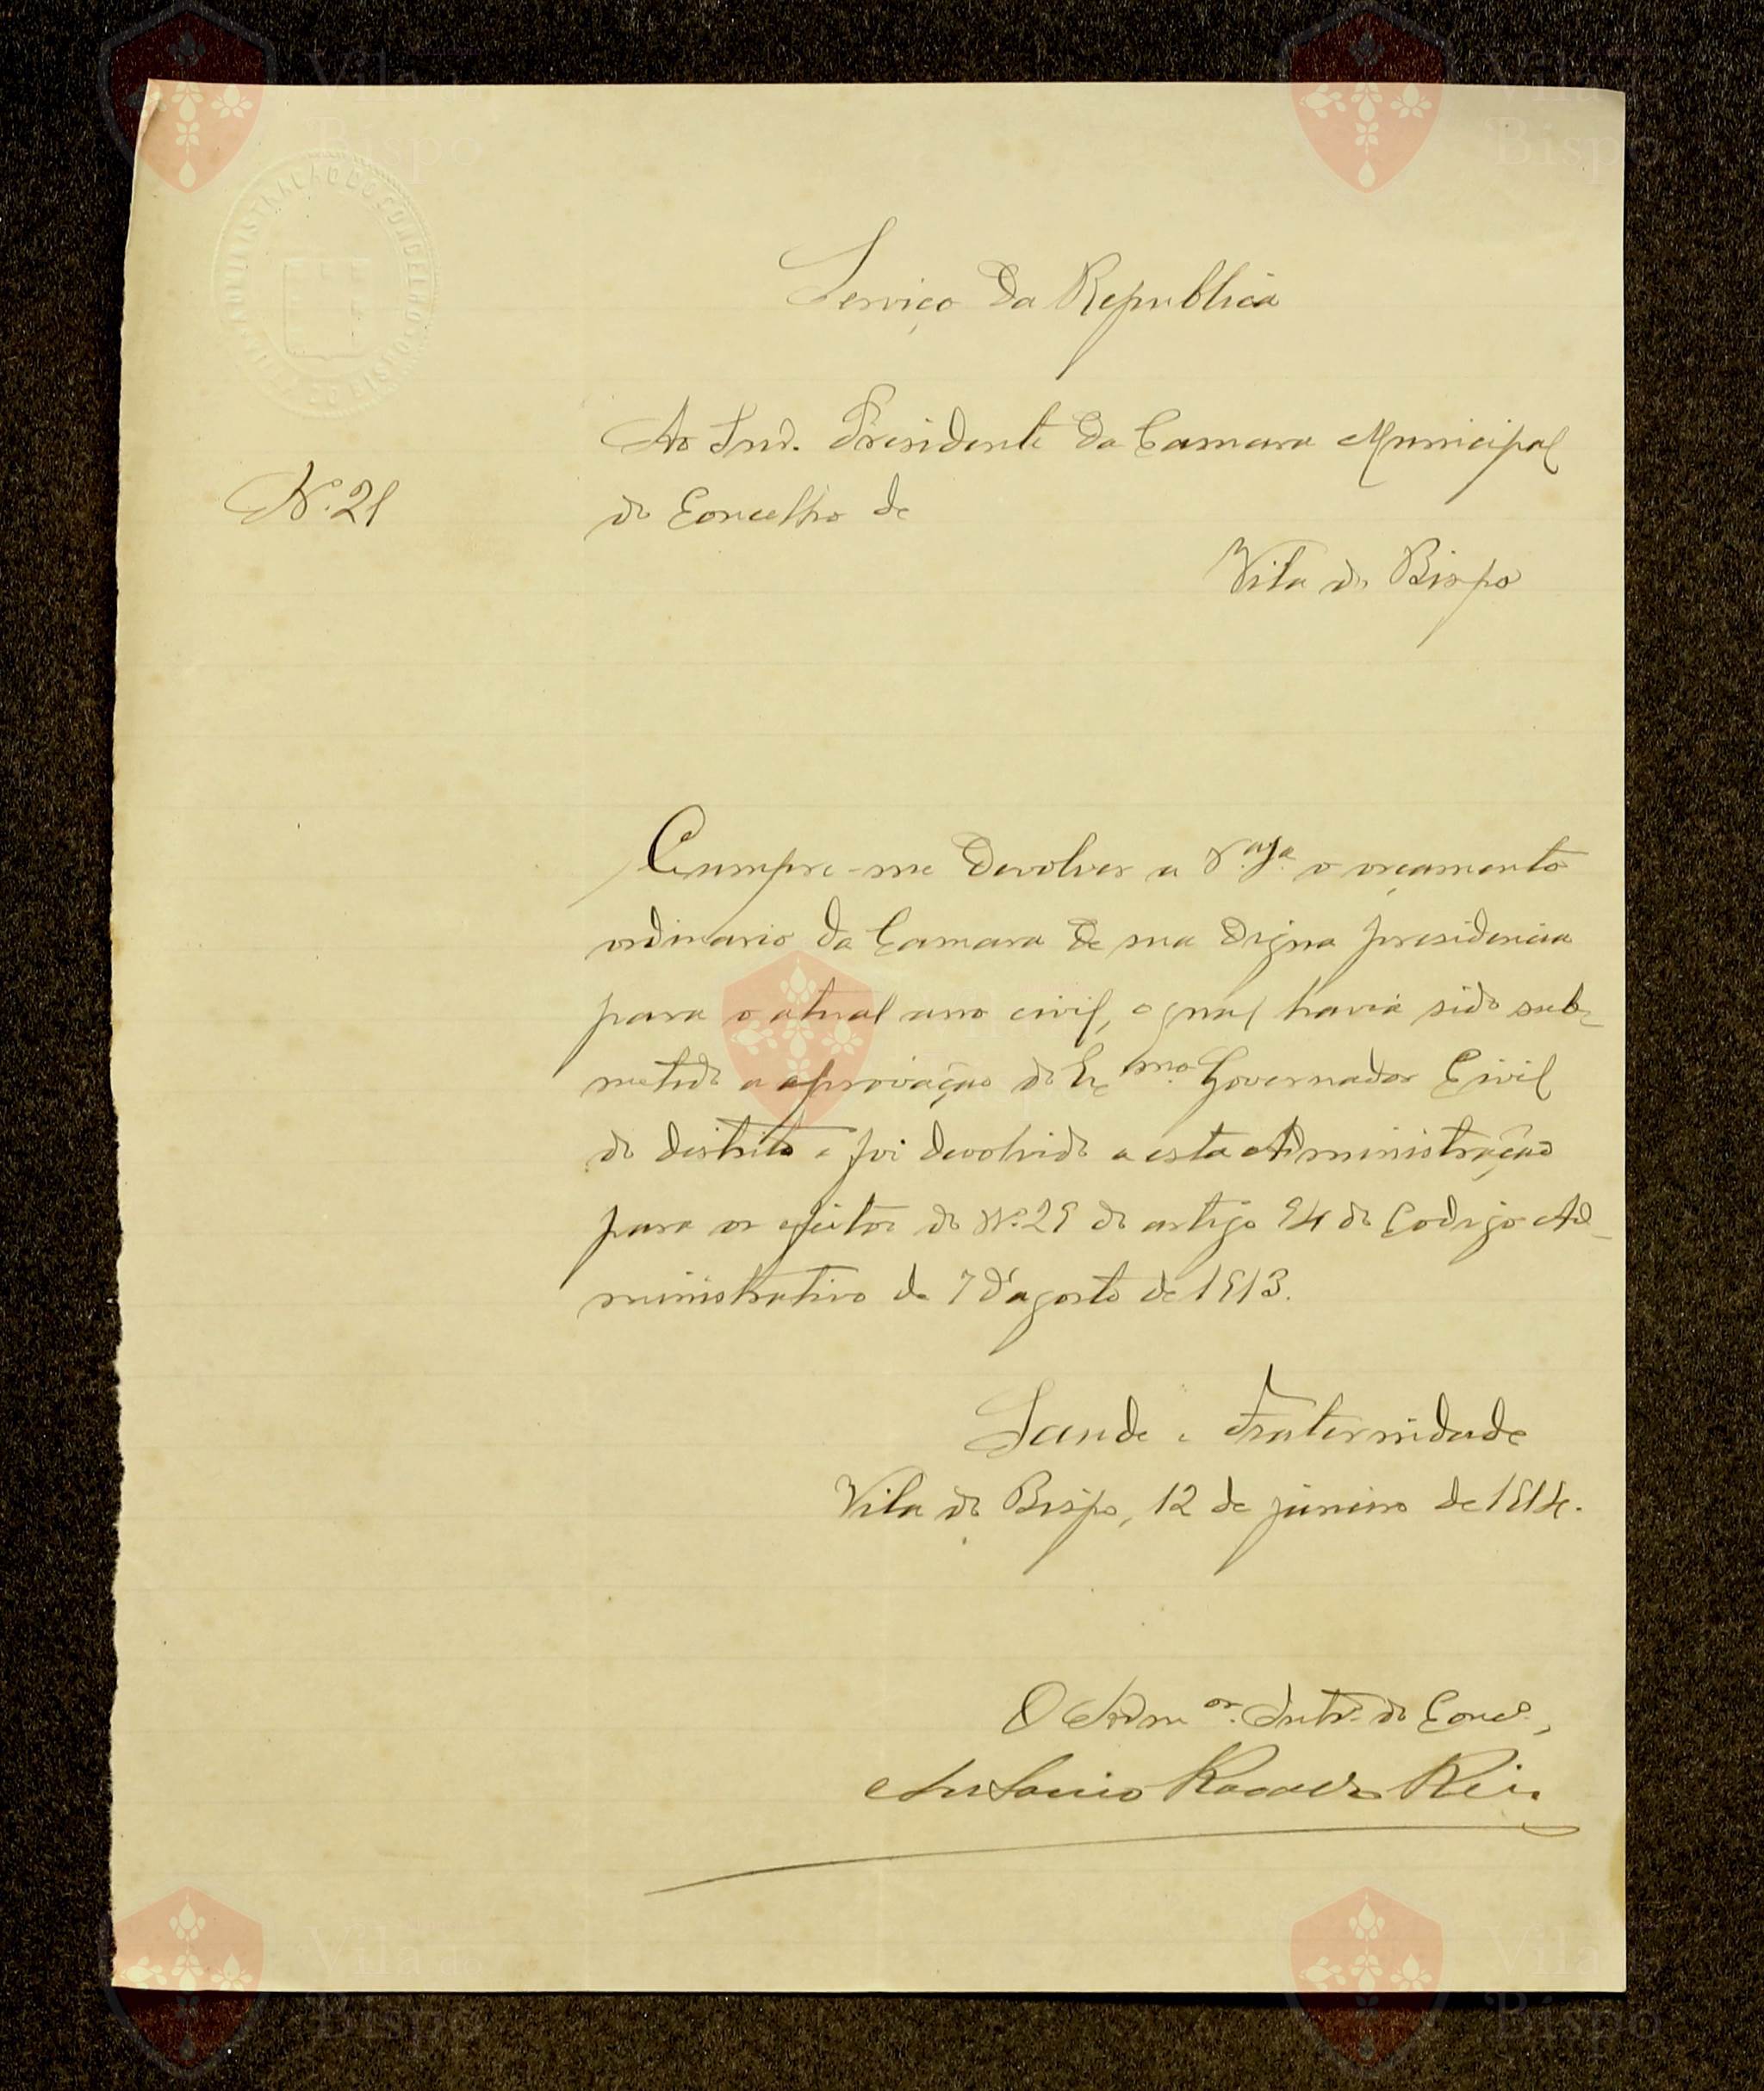 ADMINISTRAÇÃO DO CONCELHO DE VILA DO BISPO
Serviço da Republica
Ao Snr. Presidente da Camara Municipal
N.º 21
do Concelho de
Vila do Bispo
Cumpre-me devolver a V. o orçamento
ordinario da Camara de sua digna presidencia
para o atual ano civil, o qual havia sido sub-
metido a aprovação do Ex.mo Governador Civil
do distrito e foi devolvido a esta Administração
para os efeitos do N.º 29 do artigo 94 do Codigo Ad-
ministrativo de 7 d'agosto de 1913.
Saude e Fraternidade
Vila do Bispo, 12 de janeiro de 1914.
O Adm.or Intr.º do Conc.º,
Antonio Reis
Vila do
Bispo